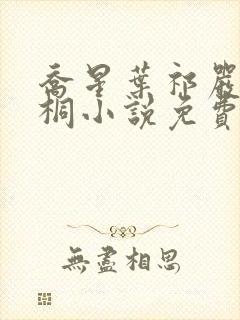 喬星葉祁嚴
桐小說免費
無盡相思